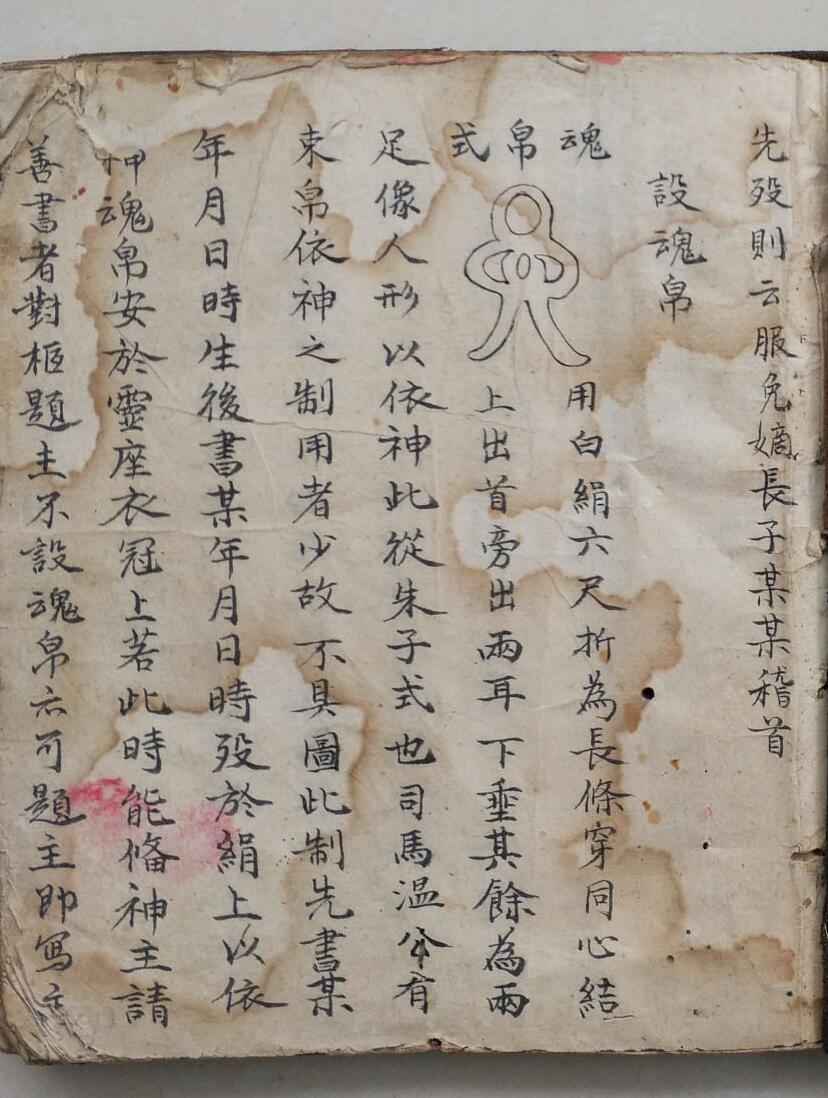 先歿則云服免嫡長子某某稽首
設魂帛
魂帛式
用白絹六尺折為長條穿同心結
上出首旁出兩耳下垂其餘為兩
足像人形以依神此從朱子式也司馬溫公有
束帛依神之制用者少故不具圖此制先書某
年月日時生後書某年月日時歿於絹上以依
神魂帛安於靈座衣冠上若此時能俻神主請
善書者對柩題主不設魂帛亦可題主即寫主